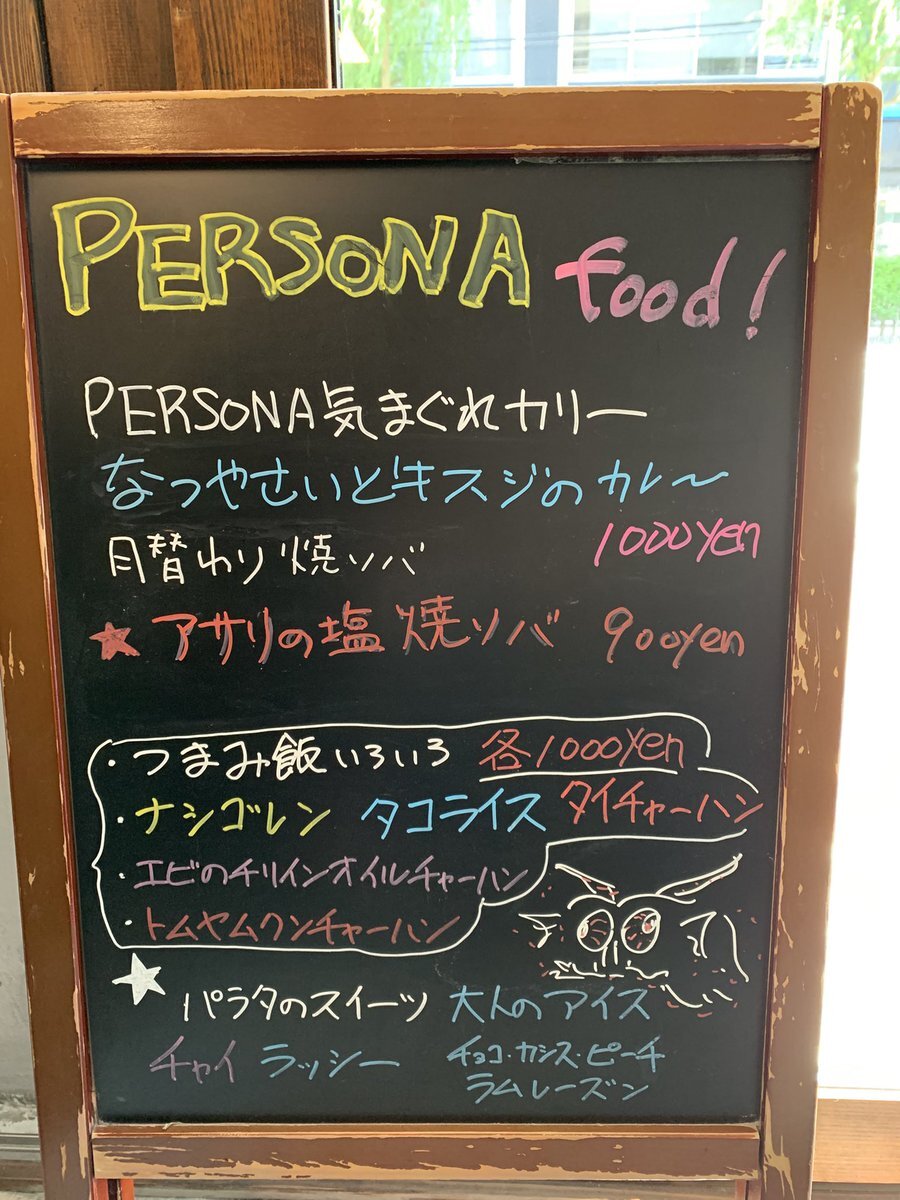 PERSONA food!
PERSONA気まぐれカリー
なつやさいとキスジのカレ〜
1000yen
月替わり焼ソバ
★アサリの塩焼ソバ 900yen
・つまみ飯いろいろ 各1000yen
・ナシゴレン タコライス タイチャーハン
・エビのチリインオイルチャーハン
・トムヤムクンチャーハン
★パラタのスイーツ 大人のアイス
チャイ ラッシー チョコ・カシス・ピーチ
ラムレーズン